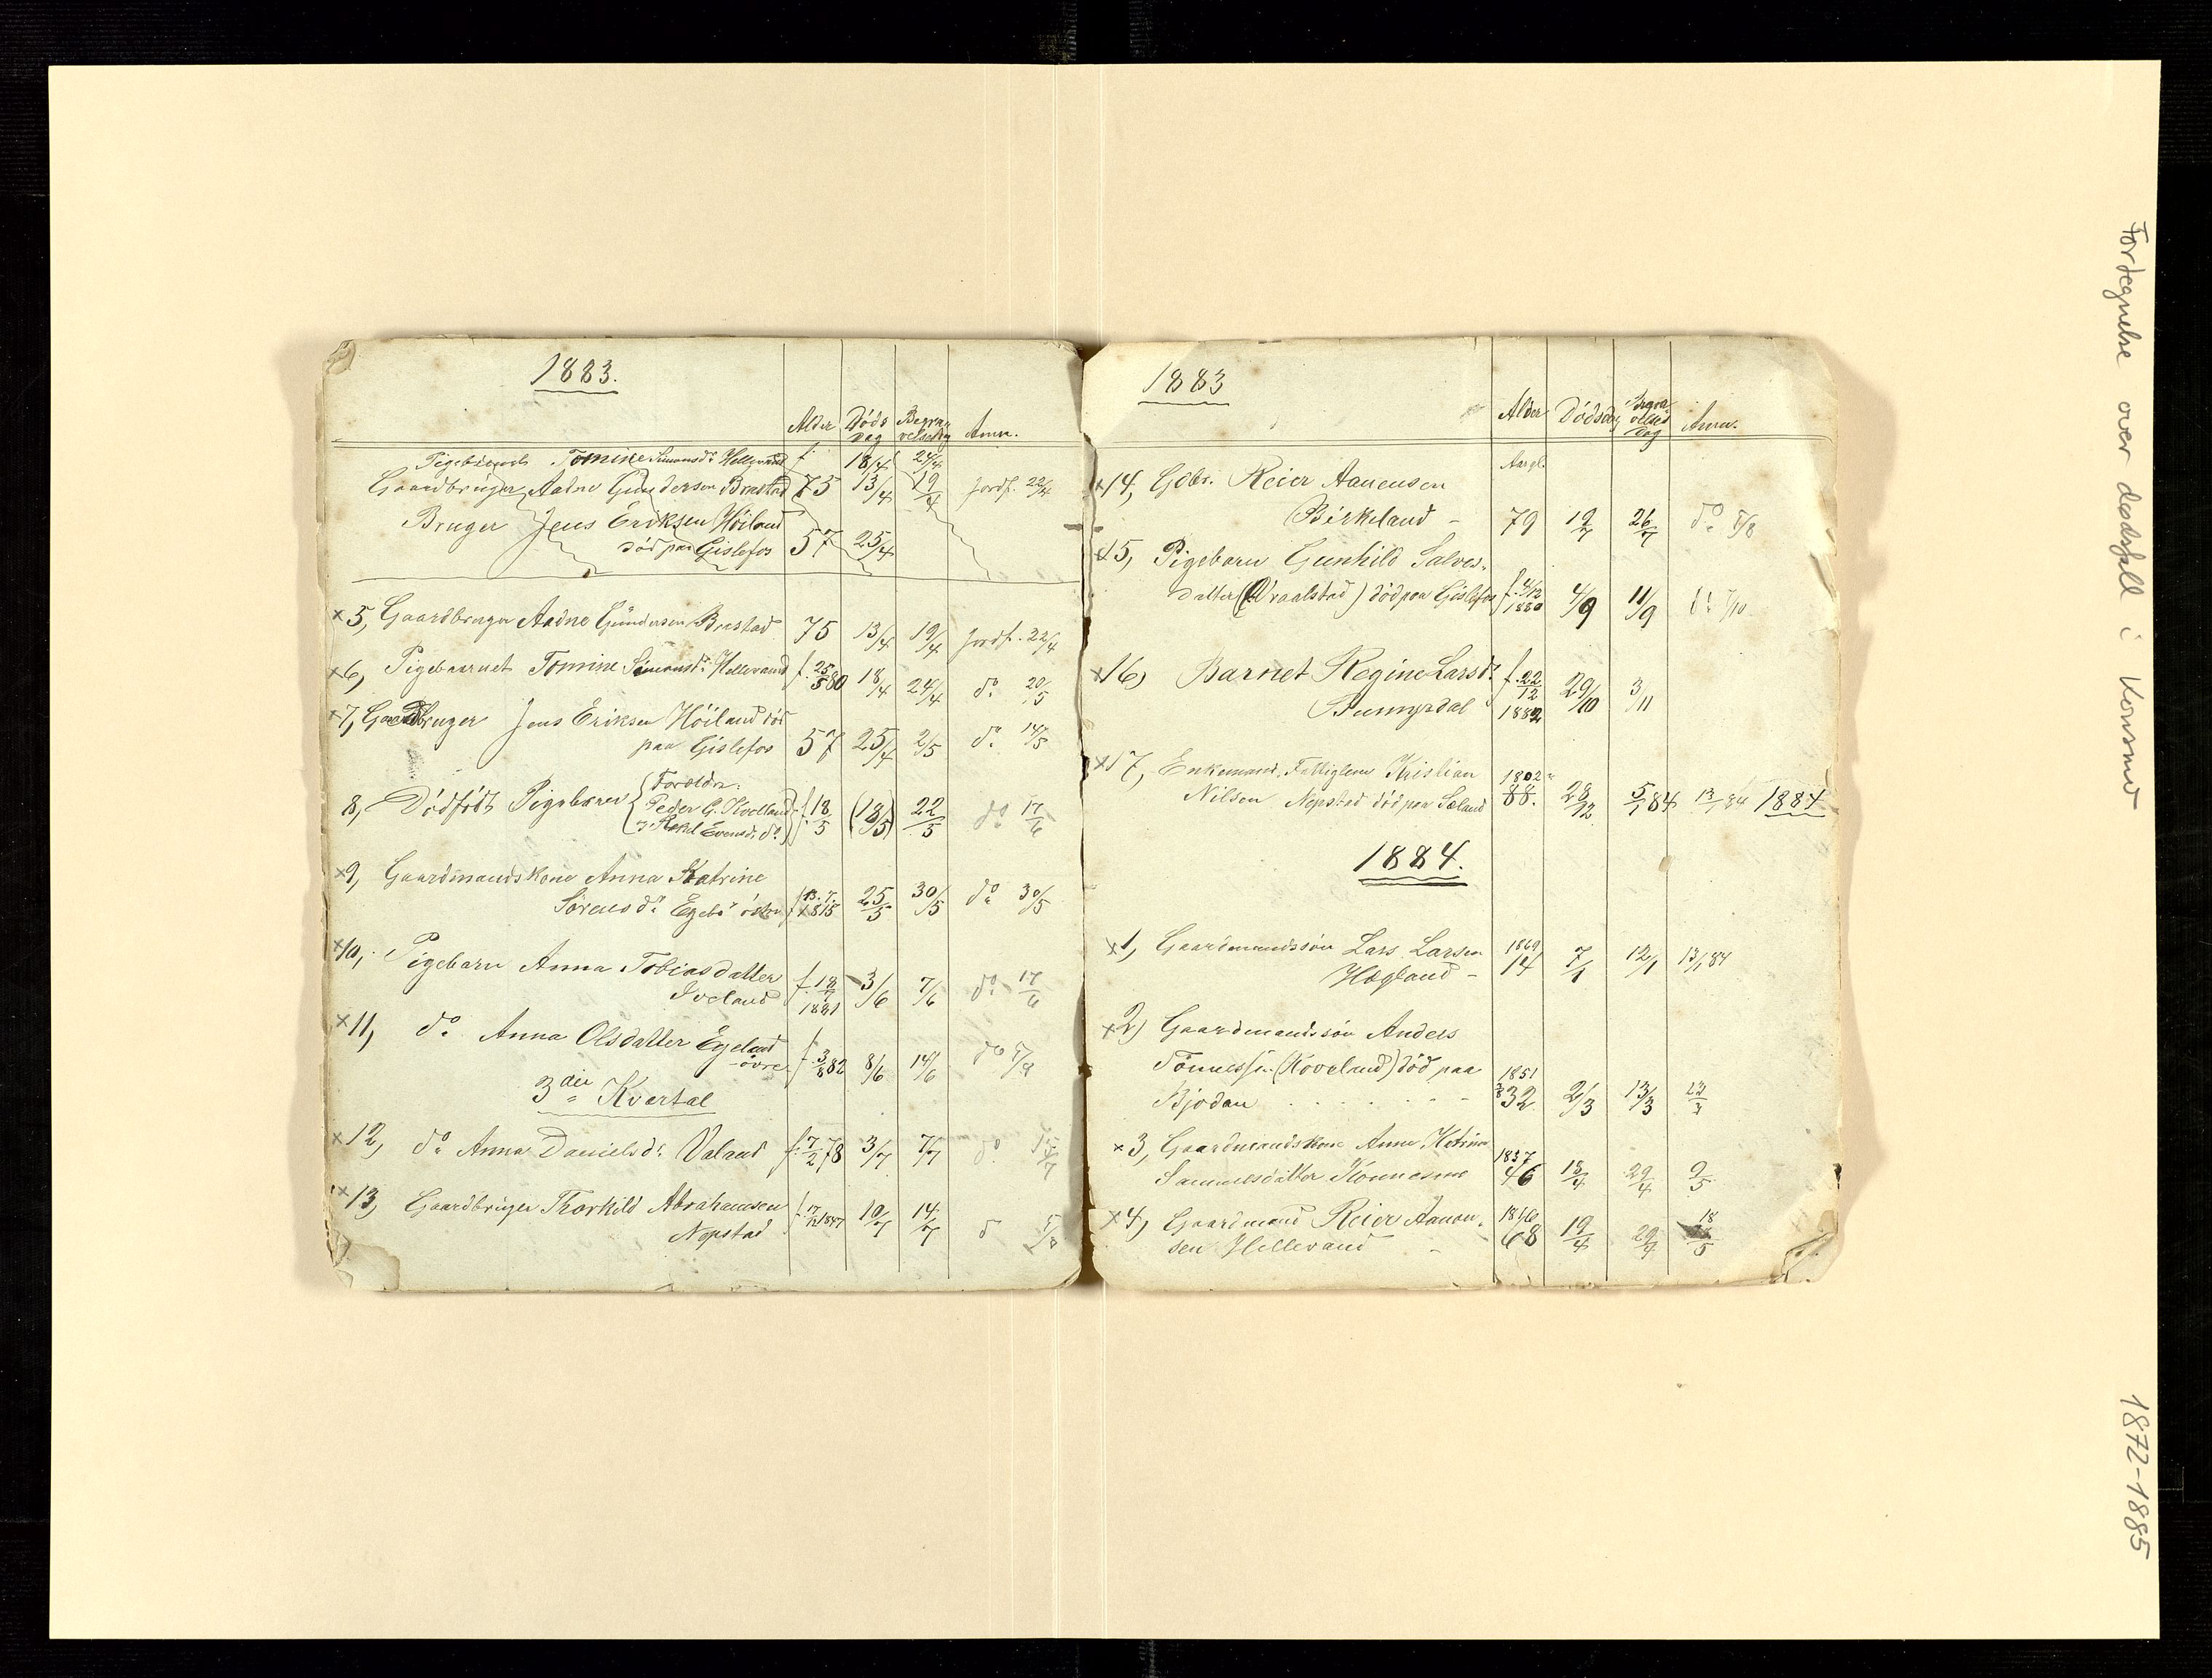 1883.
Alder Döds dag Begra velsesdag Anm.
Pigebarnet Tomine Simonsd: Hellevand f. 18/4 24/4
Gaardbruger Aadne Gundersen Brastad 75 13/4 19/4 Jordf. 22/4
Bruger Jens Eriksen Höiland
död paa Gislefos 57 25/4
x5, Gaardbruger Aadne Gundersen Brastad 75 13/4 19/4 Jordf. 22/4
x6, Pigebarnet Tomine Simonsd: Hellevand f. 25/5 80 18/4 24/4 do 20/5
x7, Gaardbruger Jens Eriksen Höiland död
paa Gislefos 57 25/4 2/5 do 14/5
8, Dödfödt Pigebarn Foreldr:
Peder G. Hvelland
f. 18/5 (18/5) 22/5 do 17/6
x9, Gaardmandskone Anna Katrine
Sörensd: Egebö f. 13.7. 1815 25/5 30/5 do 30/5
x10, Pigebarn Anna Tobiasdatter
Iveland f. 18/7 1881 3/6 7/6 do 17/6
x11, do Anna Olsdatter Egeland
övre f. 3/8 82 8/6 14/6 do 5/8
3die Kvartal
x12, do Anna Danielsd: Valand f. 7/2 78 3/7 7/7 do 15/7
x13, Gaardbruger Thorkild Abrahamsen
Nepstad f. 17/12 1847 10/7 14/7 d 5/8
1883
Alder Dödsdag Begra velses dag Anm.
Aargl.
x14, Gdbr. Reier Aanensen
Birkeland - 79 19/7 26/7 do 5/8
x15, Pigebarn Gunhild Salves-
datter (Vraalstad) död paa Gislefos f. 4/12 1880 4/9 11/9 do 7/10
x16, Barnet Regine Larsd:
f. 22/12 1882 29/10 3/11
x17, Enkemand, Fattiglem Kristian 1802
Nilsen Nepstad död paa Sæland 88. 28/12 5/1 84 13/1 84 1884
1884.
x1, Gaardmandssön Lars Larsen 1869
Hægland - 14 7/1 12/1 13/1 84
x2, Gaardmandssön Anders
Tönnessen (Hoveland) död paa 1851
Bjodan . . . . . - 32 2/3 13/3 23/3
x3, Gaardmandskone Anne Katrine 1837
Samuelsdatter Konnesme 46 18/4 29/4 9/5
x4, Gaardmand Reier Aanon- 1816
sen Hellevand - 68 19/4 29/4 18/5
Fortegnelse over dødsfall i Konsmo
1872-1885